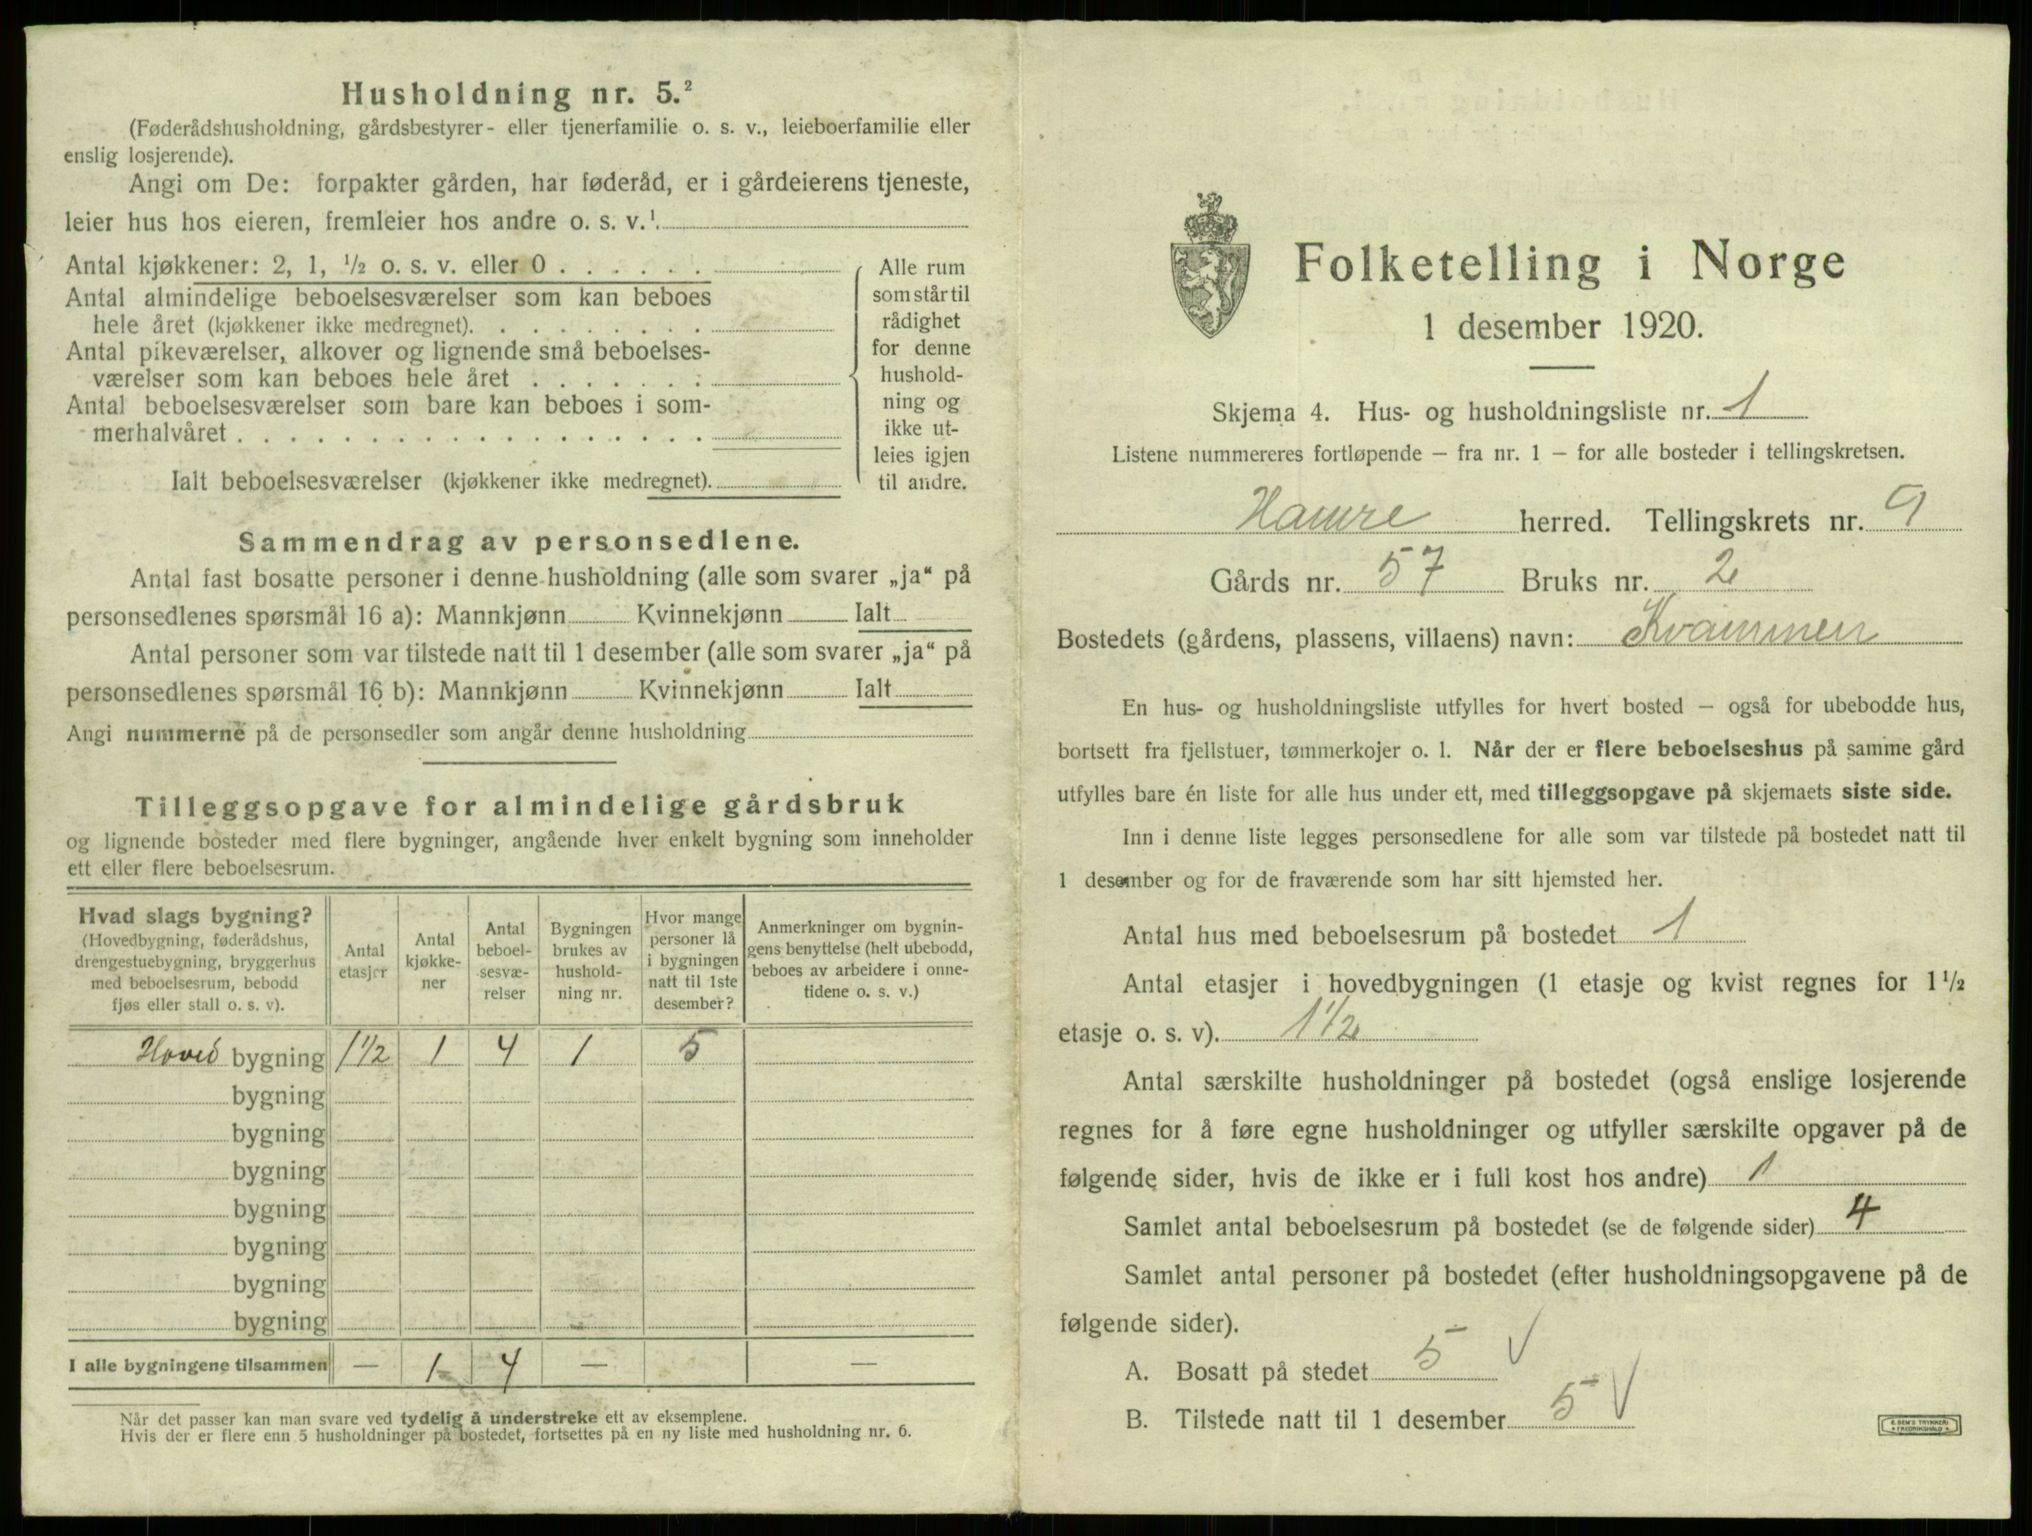 Husholdning nr. 5.²
(Føderådshusholdning, gårdsbestyrer- eller tjenerfamilie o. s. v., leieboerfamilie eller
enslig losjerende).
Angi om De: forpakter gården, har føderåd, er i gårdeierens tjeneste,
leier hus hos eieren, fremleier hos andre o. s. v.¹
Antal kjøkkener: 2, 1, ½ o. s. v. eller 0 . . . . . .
Antal almindelige beboelsesværelser som kan beboes
hele året (kjøkkener ikke medregnet). . . . . . . . .
Antal pikeværelser, alkover og lignende små beboelses-
værelser som kan beboes hele året . . . . . . .
Antal beboelsesværelser som bare kan beboes i som-
merhalvåret . . . . . . . . . . . . . . . . . .
Ialt beboelsesværelser (kjøkkener ikke medregnet).
Alle rum
som står til
rådighet
for denne
hushold-
ning og
ikke ut-
leies igjen
til andre.
Sammendrag av personsedlene.
Antal fast bosatte personer i denne husholdning (alle som svarer „ja“ på
personsedlenes spørsmål 16 a): Mannkjønn Kvinnekjønn Ialt
Antal personer som var tilstede natt til 1 desember (alle som svarer „ja“ på
personsedlenes spørsmål 16 b): Mannkjønn Kvinnekjønn Ialt
Angi nummerne på de personsedler som angår denne husholdning
Tilleggsopgave for almindelige gårdsbruk
og lignende bosteder med flere bygninger, angående hver enkelt bygning som inneholder
ett eller flere beboelsesrum.
Hvad slags bygning?
(Hovedbygning, føderådshus,
drengestuebygning, bryggerhus
med beboelsesrum, bebodd
fjøs eller stall o. s. v).
Antal
etasjer
Antal
kjøkke-
ner
Antal
beboel-
sesvæ-
relser
Bygningen
brukes av
hushold-
ning nr.
Hvor mange
personer lå
i bygningen
natt til 1ste
desember?
Anmerkninger om bygnin-
gens benyttelse (helt ubebodd,
beboes av arbeidere i onne-
tidene o. s. v.)
Hoved bygning 1½ 1 4 1 5
bygning
bygning
bygning
bygning
bygning
bygning
bygning
I alle bygningene tilsammen — 1 4 — —
Når det passer kan man svare ved tydelig å understreke ett av eksemplene.
Hvis der er flere enn 5 husholdninger på bostedet, fortsettes på en ny liste med husholdning nr. 6.
Folketelling i Norge
1 desember 1920.
Skjema 4. Hus- og husholdningsliste nr. 1
Listene nummereres fortløpende – fra nr. 1 – for alle bosteder i tellingskretsen.
Hamre herred. Tellingskrets nr. 9
Gårds nr. 57 Bruks nr. 2
Bostedets (gårdens, plassens, villaens) navn: Kvammen
En hus- og husholdningsliste utfylles for hvert bosted – også for ubebodde hus,
bortsett fra fjellstuer, tømmerkojer o. l. Når der er flere beboelseshus på samme gård
utfylles bare én liste for alle hus under ett, med tilleggsopgave på skjemaets siste side.
Inn i denne liste legges personsedlene for alle som var tilstede på bostedet natt til
1 desember og for de fraværende som har sitt hjemsted her.
Antal hus med beboelsesrum på bostedet 1
Antal etasjer i hovedbygningen (1 etasje og kvist regnes for 1½
etasje o. s. v). 1½
Antal særskilte husholdninger på bostedet (også enslige losjerende
regnes for å føre egne husholdninger og utfyller særskilte opgaver på de
følgende sider, hvis de ikke er i full kost hos andre) 1
Samlet antal beboelsesrum på bostedet (se de følgende sider) 4
Samlet antal personer på bostedet (efter husholdningsopgavene på de
følgende sider).
A. Bosatt på stedet 5 V
B. Tilstede natt til 1 desember 5 V
E. SEM'S TRYKKERI
FREDRIKSHALD